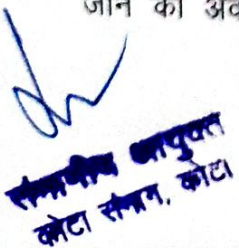 जाने का
संभागीय आयुक्त
कोटा संभाग, कोटा